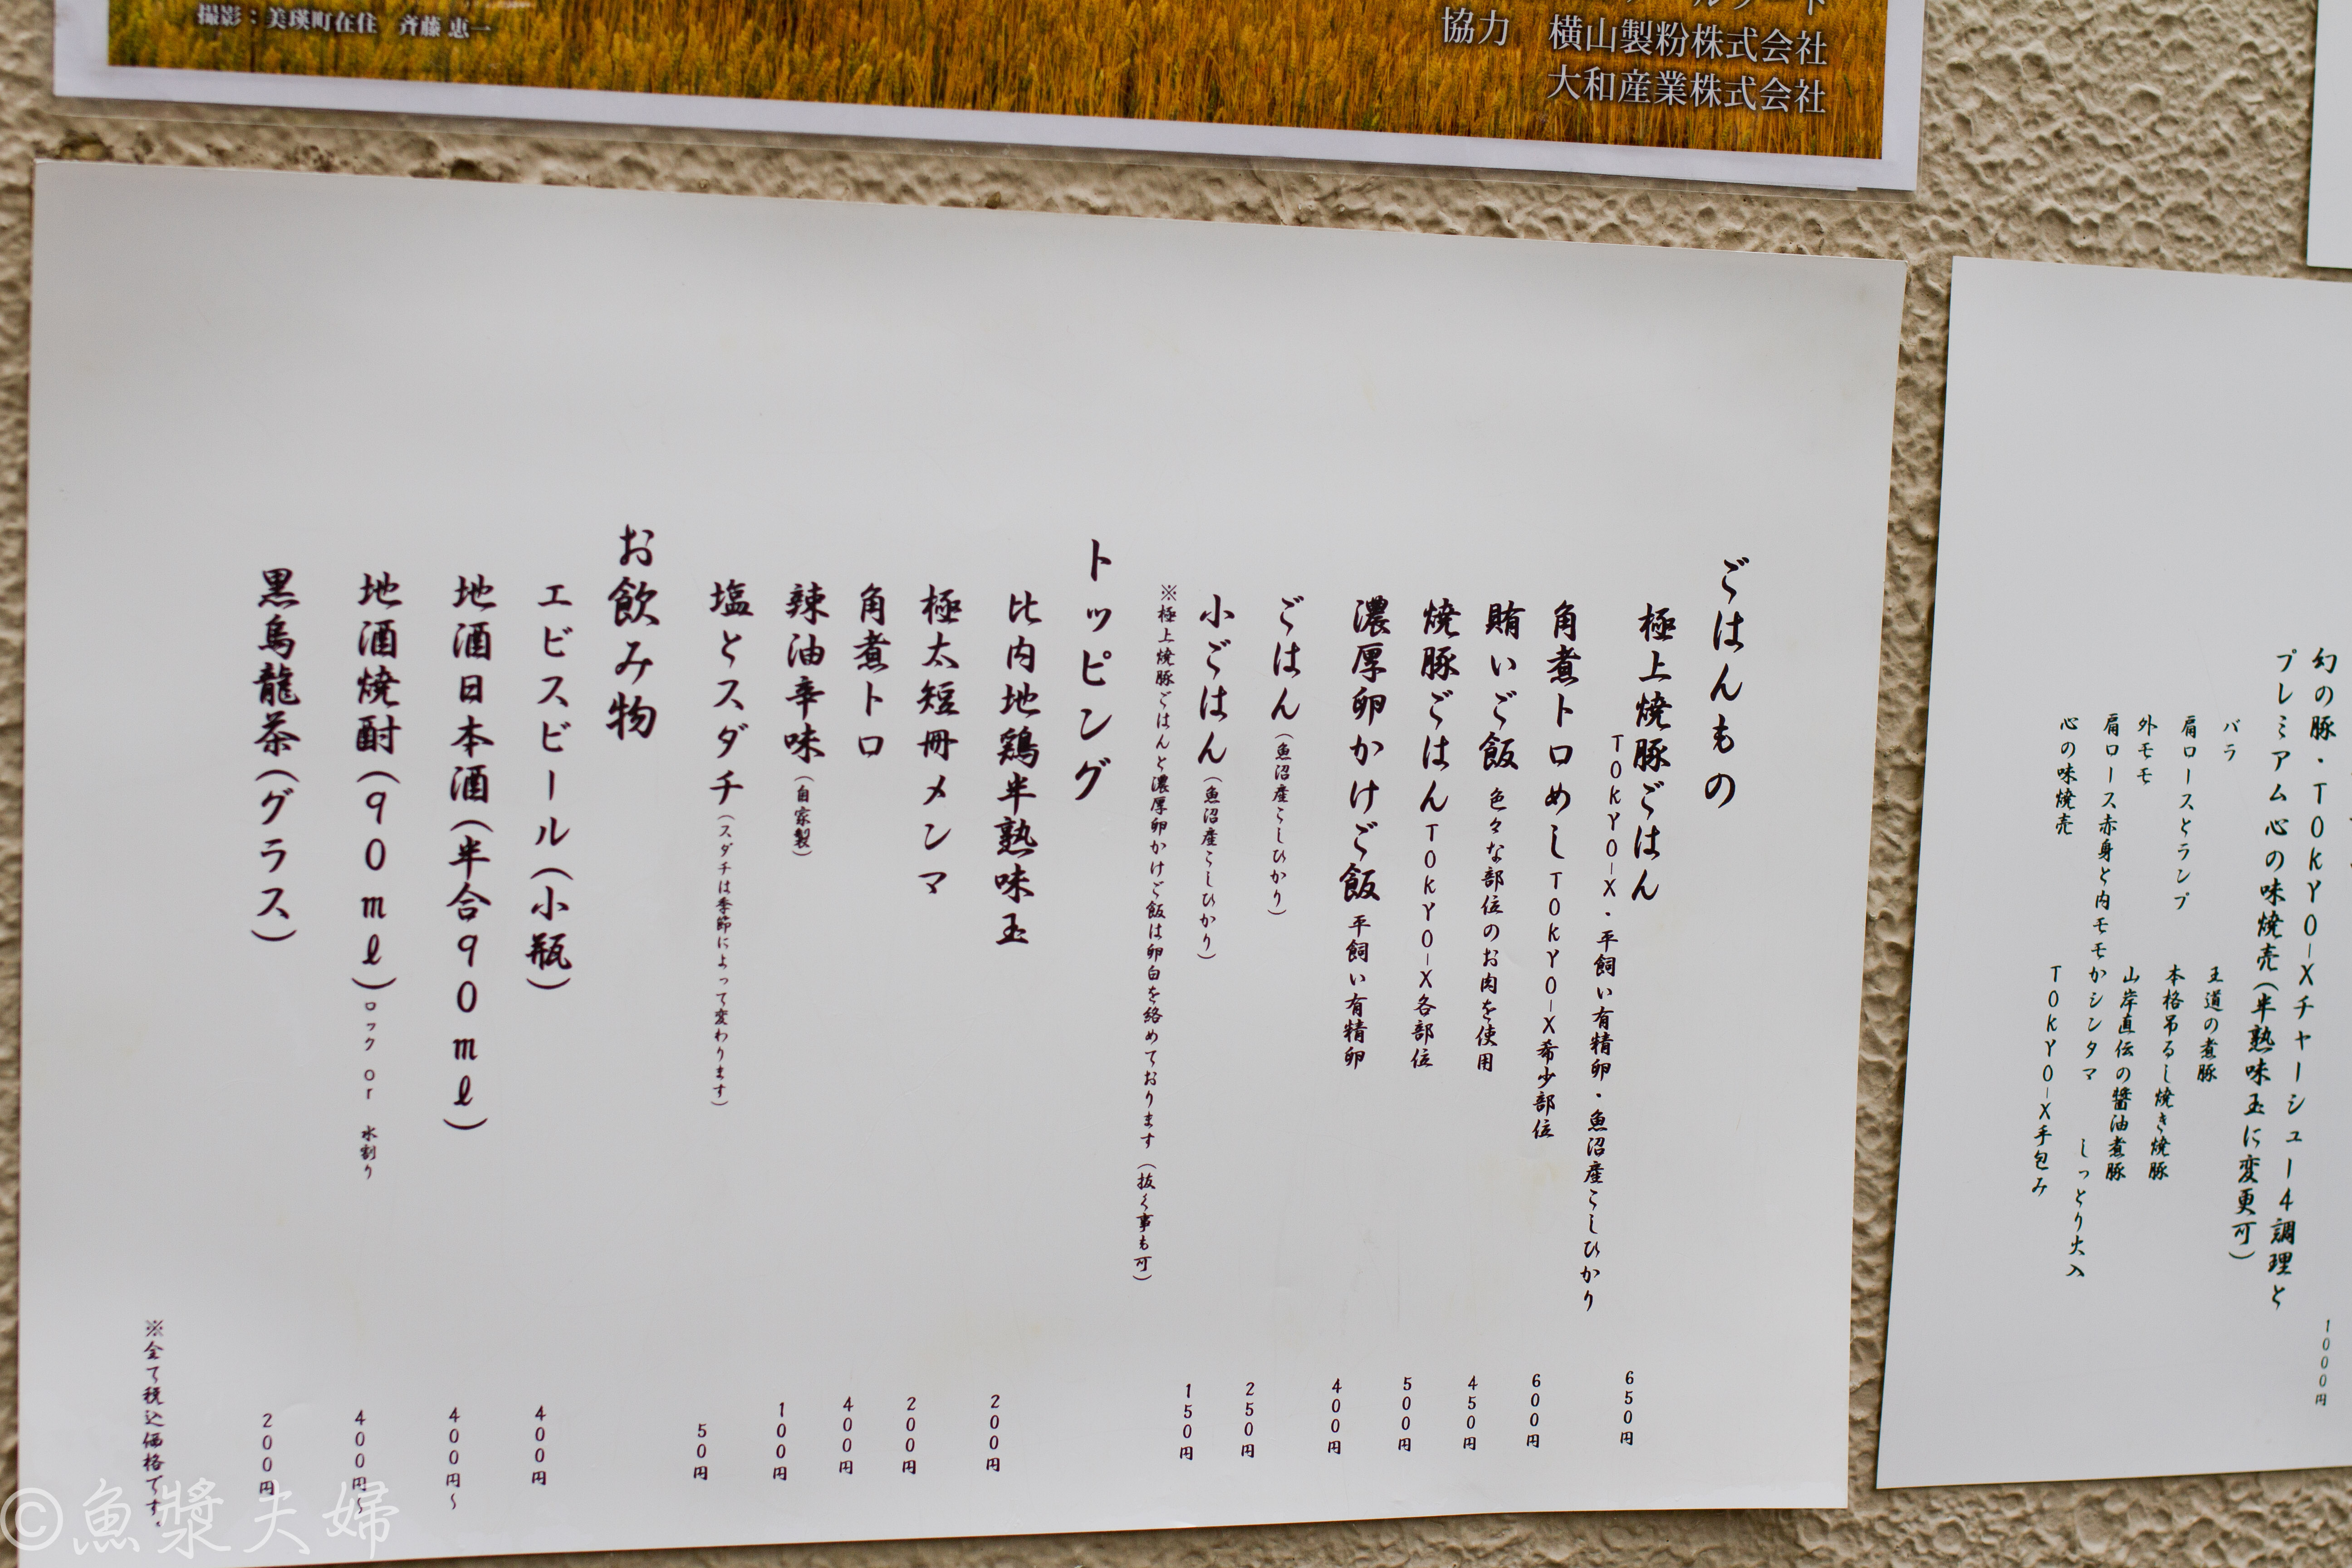 撮影：美瑛町在住　斉藤 恵一
協力　横山製粉株式会社
大和産業株式会社
ごはんもの
極上焼豚ごはん
TOKYO-X・平飼い有精卵・魚沼産こしひかり
650円
角煮トロめし TOKYO-X希少部位 600円
賄いご飯 色々な部位のお肉を使用 450円
焼豚ごはん TOKYO-X各部位 500円
濃厚卵かけご飯 平飼い有精卵 400円
ごはん（魚沼産こしひかり） 250円
小ごはん（魚沼産こしひかり） 150円
※極上焼豚ごはんと濃厚卵かけご飯は卵白を絡めております（抜く事も可）
トッピング
比内地鶏半熟味玉 200円
極太短冊メンマ 200円
角煮トロ 400円
辣油辛味（自家製） 100円
塩とスダチ（スダチは季節によって変わります） 50円
お飲み物
エビスビール（小瓶） 400円
地酒日本酒（半合90ml） 400円～
地酒焼酎（90ml）ロック or 水割り 400円～
黒烏龍茶（グラス） 200円
※全て税込価格です。
幻の豚・TOKYO-Xチャーシュー4調理と
プレミアム心の味焼売（半熟味玉に変更可）
1000円
バラ 王道の煮豚
肩ロースとランプ 本格吊るし焼き焼豚
外モモ 山岸直伝の醤油煮豚
肩ロース赤身と内モモかシンタマ しっとり火入
心の味焼売 TOKYO-X手包み
©魚漿夫婦